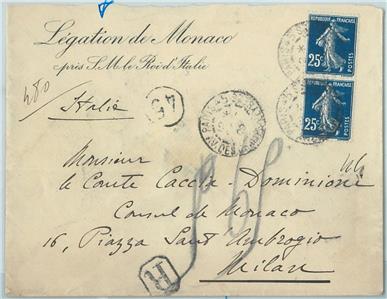 Légation de Monaco
près S.M. le Roi d'Italie
REPUBLIQUE FRANÇAISE
25c
POSTES
REPUBLIQUE FRANÇAISE
25c
POSTES
480
Italie
45
PARIS
Monsieur
le Comte Caccia-Dominioni
Consul de Monaco
16, Piazza Sant Ambrogio
Milan
R